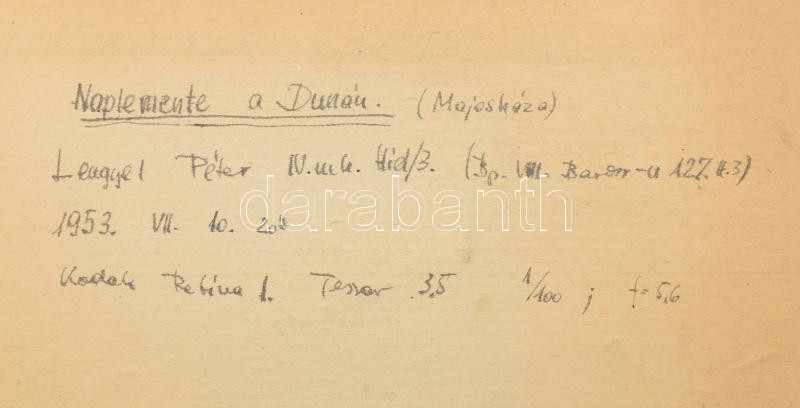 Naplemente a Dunán. (Majosháza)
Lengyel Péter IV. mh. Híd/3. (Bp. VIII. Baross-u 127. II.3)
darabanth
1953. VII. 10. 20ʰ
Kodak Retina I. Tessar 3,5 1/100 ; f=5,6